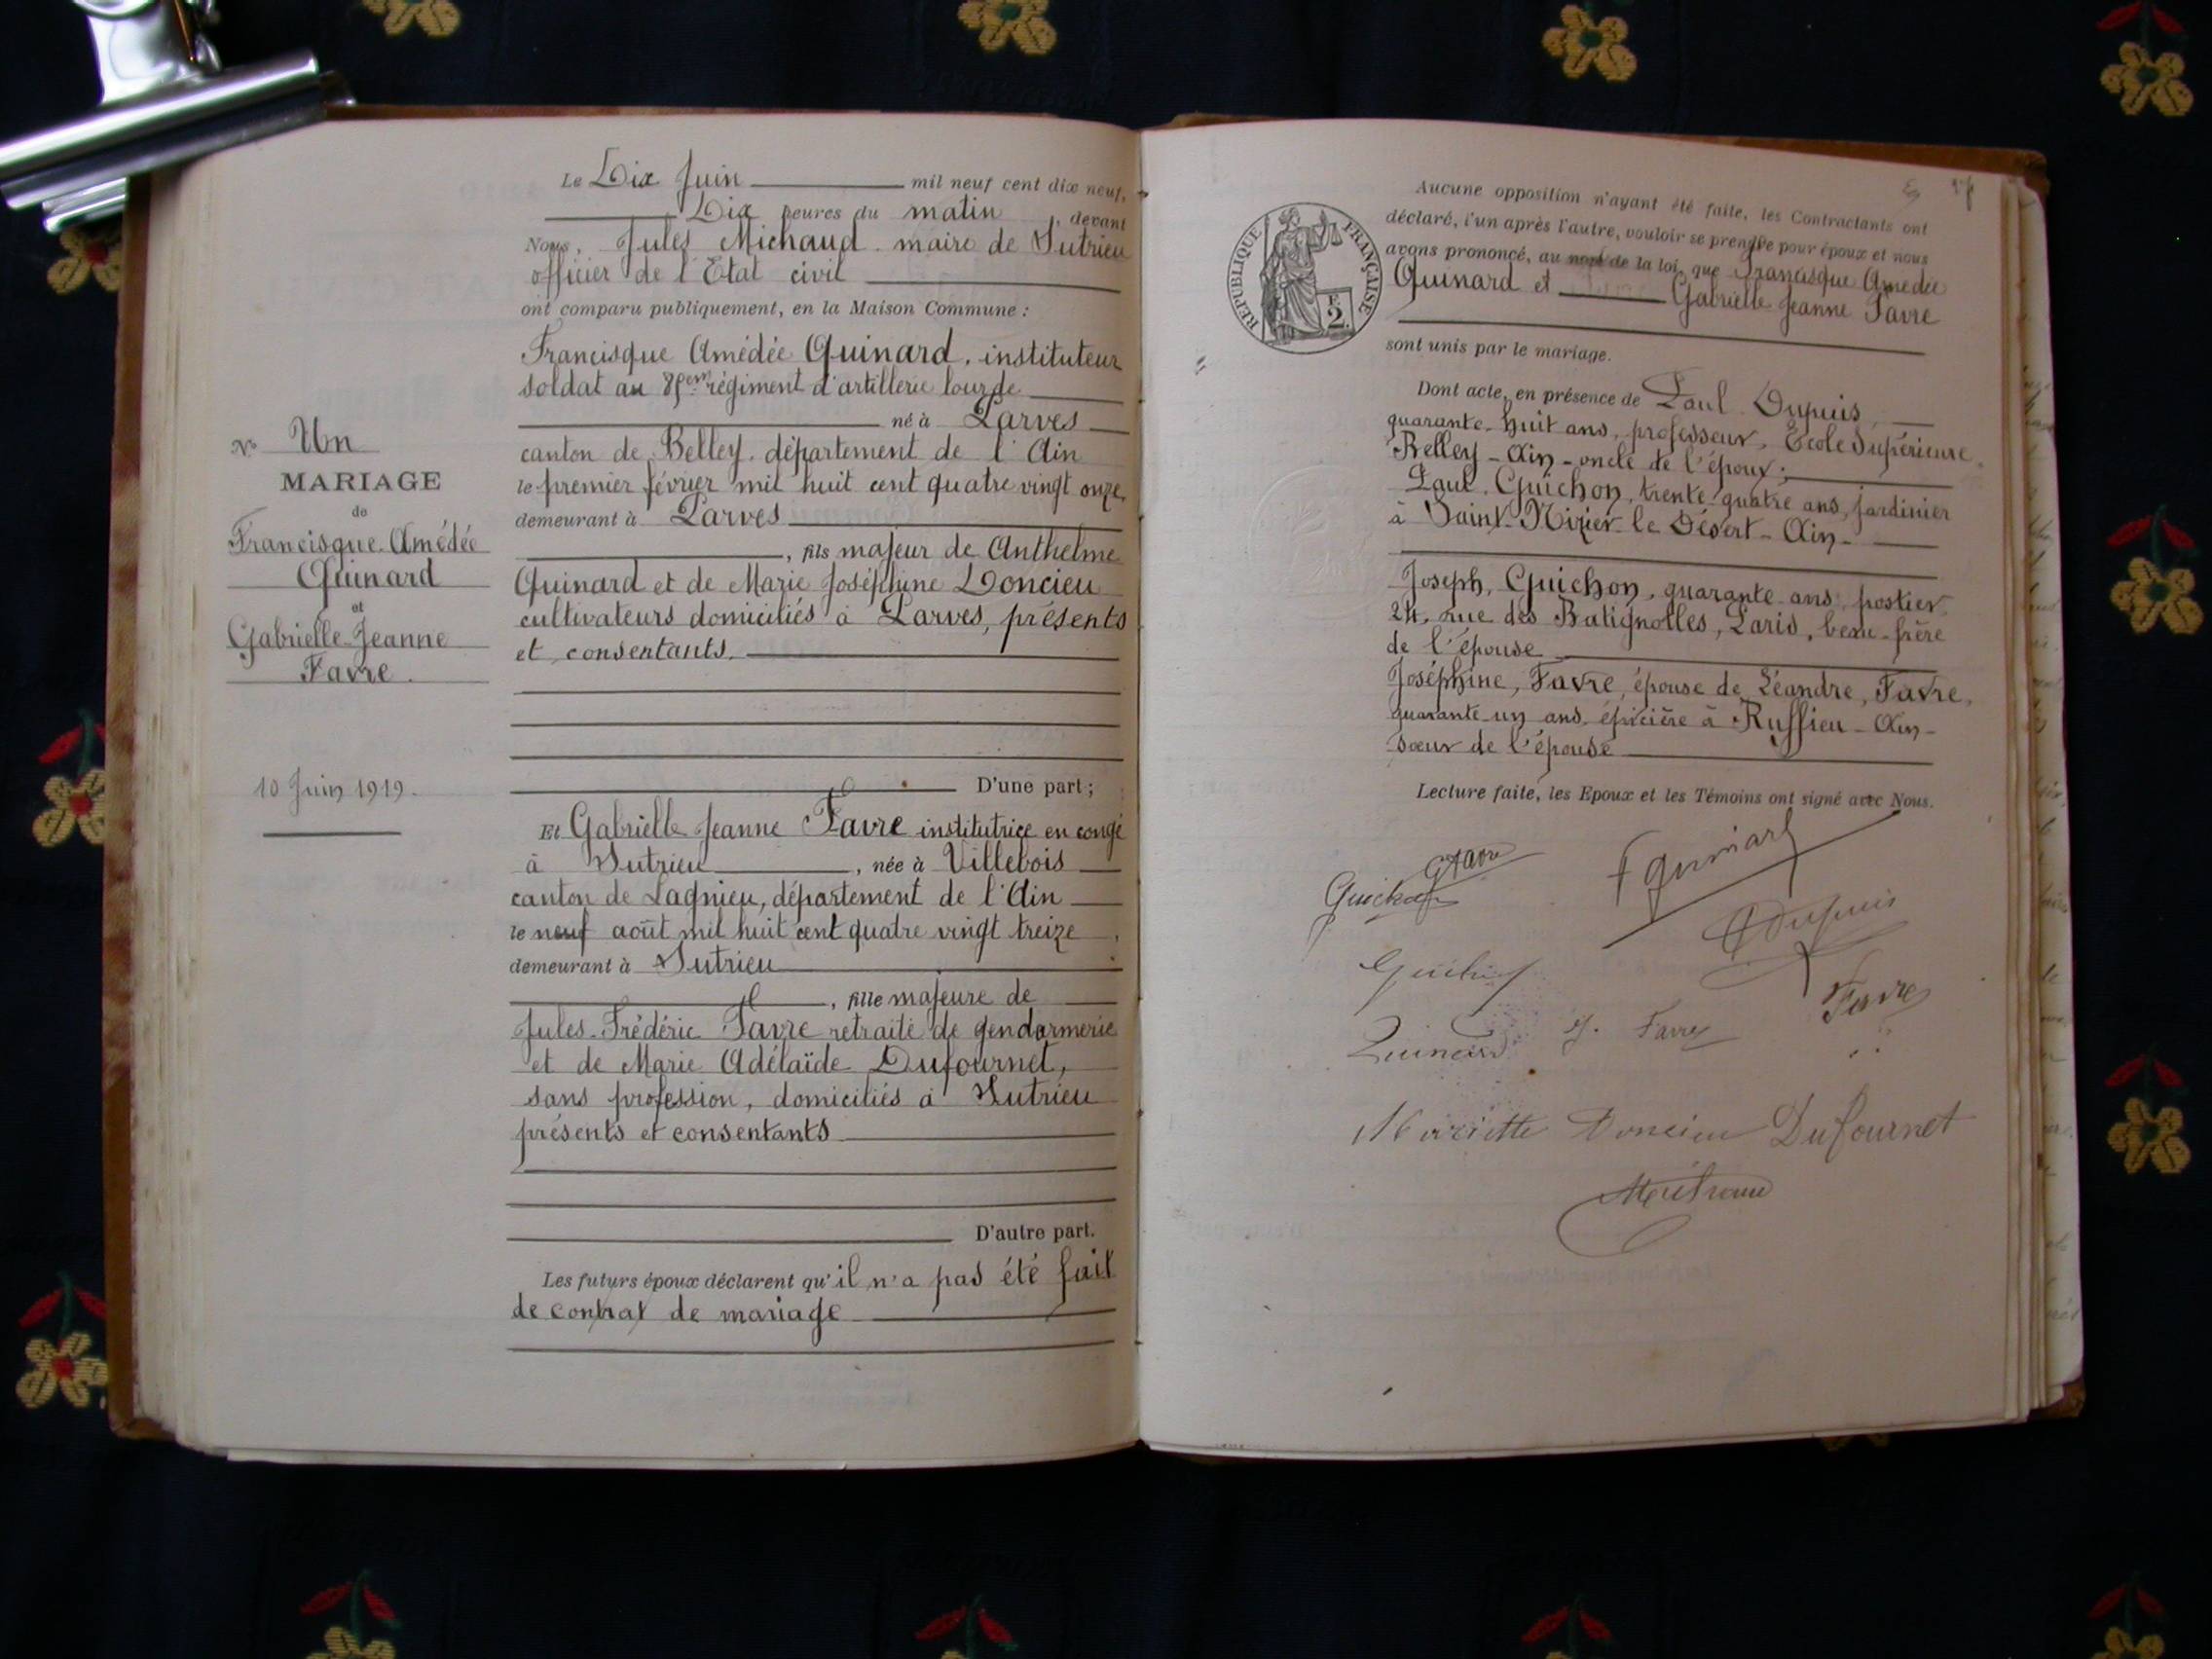 Le Dix Juin mil neuf cent dix neuf,
Dix heures du matin, devant
Nous, Jules Michaud maire de Sutrieu
officier de l'État civil
ont comparu publiquement, en la Maison Commune :
Francisque Amédée Quinard, instituteur
soldat au régiment d'artillerie lourde
né à Parves
canton de Belley, département de l'Ain
le premier février mil huit cent quatre vingt onze,
demeurant à Parves
, fils majeur de Anthelme
Quinard et de Marie Joséphine Doncieu
cultivateurs domiciliés à Parves, présents
et consentants.
D'une part ;
Et Gabrielle Jeanne Favre institutrice en congé
à Sutrieu, née à Villebois
canton de Lagnieu, département de l'Ain
le neuf août mil huit cent quatre vingt treize,
demeurant à Sutrieu
, fille majeure de
Jules Frédéric Favre retraité de gendarmerie
et de Marie Adélaïde Dufournet,
sans profession, domiciliés à Sutrieu
présents et consentants
D'autre part.
Les futurs époux déclarent qu'il n'a pas été fait
de contrat de mariage
N° Un
MARIAGE
de
Francisque Amédée
Quinard
et
Gabrielle Jeanne
Favre.
10 Juin 1919.
RÉPUBLIQUE FRANÇAISE
2
Aucune opposition n'ayant été faite, les Contractants ont
déclaré, l'un après l'autre, vouloir se prendre pour époux et nous
avons prononcé, au nom de la loi, que Francisque Amédée
Quinard et Gabrielle Jeanne Favre
sont unis par le mariage.
Dont acte, en présence de Paul Dupuis,
quarante-huit ans, professeur, École Supérieure,
Belley - Ain - oncle de l'époux ;
Paul, Guichon, trente-quatre ans, jardinier
à Saint-Nizier-le Désert - Ain -
Joseph, Guichon, quarante ans, postier,
24, rue des Batignolles, Paris, beau-frère
de l'épouse
Joséphine, Favre, épouse de Léandre, Favre,
quarante-un ans, épicière à Ruffieu - Ain -
sœur de l'épouse
Lecture faite, les Epoux et les Témoins ont signé avec Nous.
GFavre
F Quinard
Guichon
Dupuis
Guichon
Favre
Quinard J. Favre
Mariette Doncieu Dufournet
Michaud